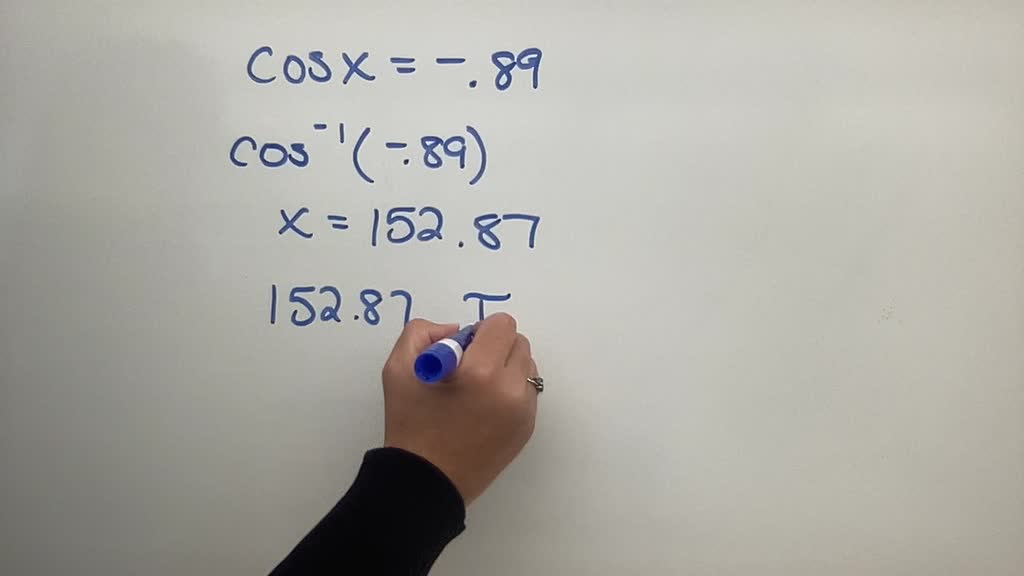 cos x = -.89
cos⁻¹(-.89)
x = 152.87
152.87